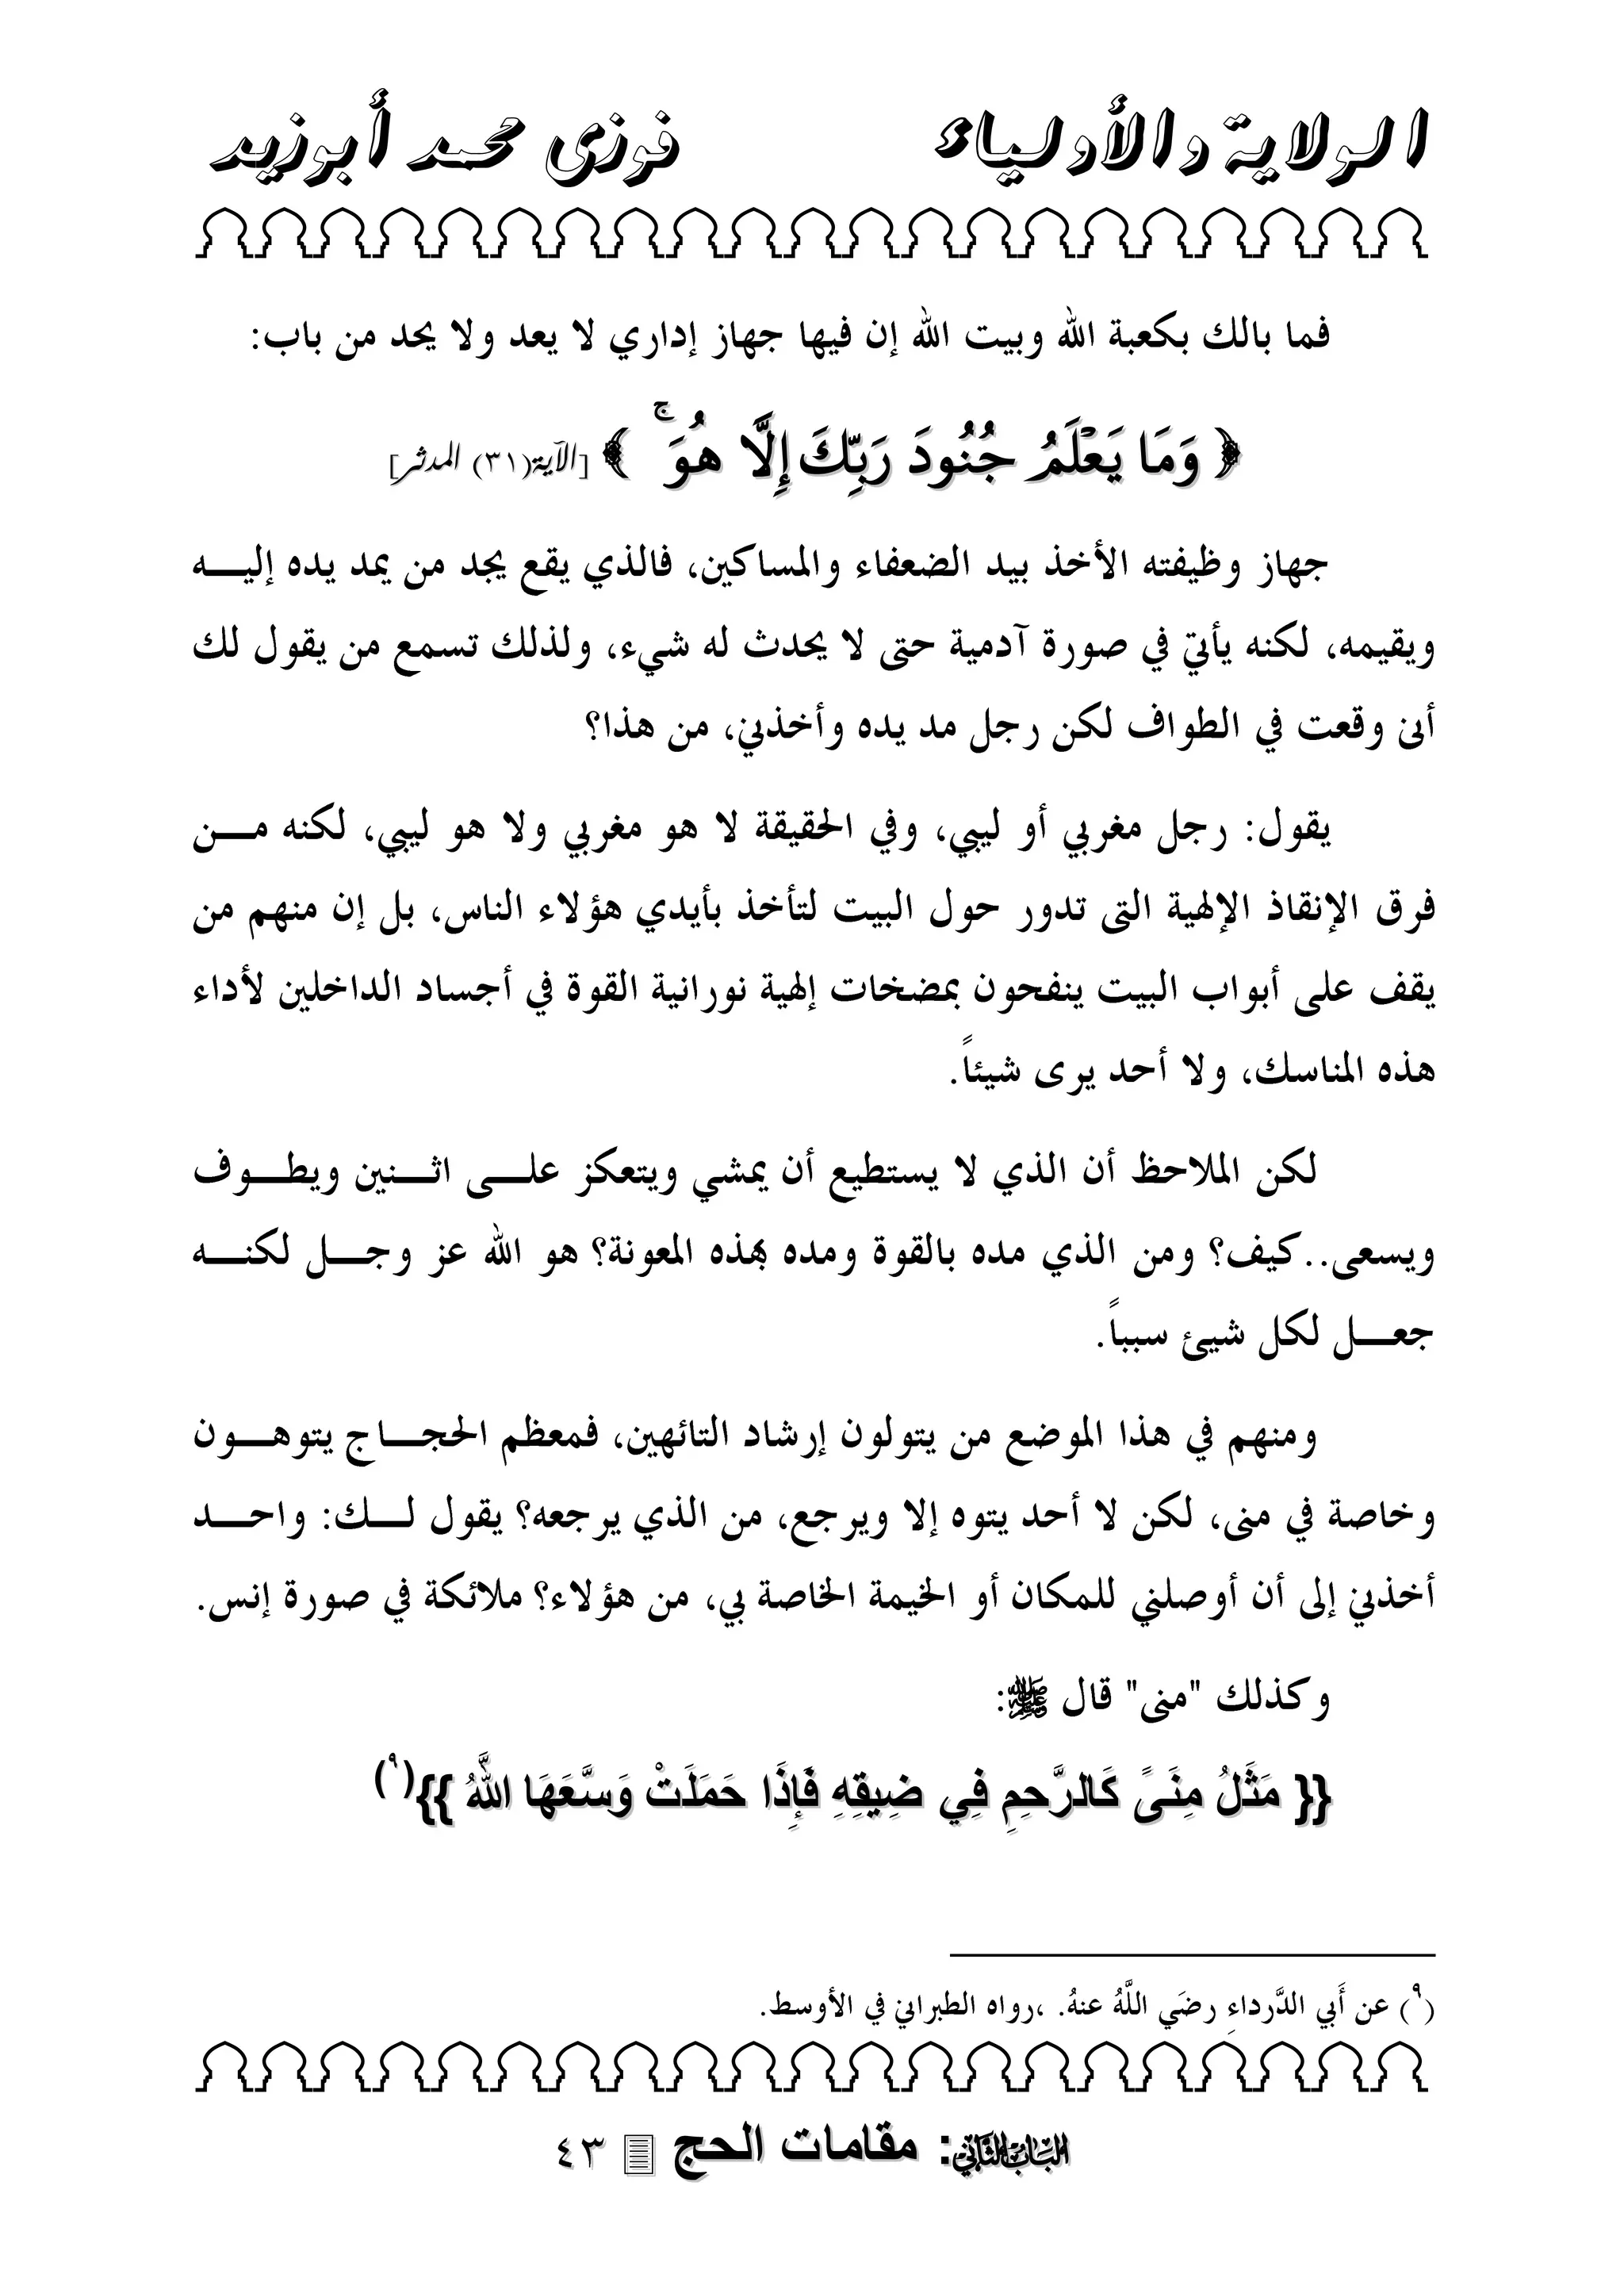 الولاية والأولياء فوزى محمد أبوزيد
فما بالك بكعبة الله وبيت الله إن فيها جهاز إداري لا يعد ولا يحد من باب:
﴿ وَمَا يَعْلَمُ جُنُودَ رَبِّكَ إِلَّا هُوَ ۚ ﴾ [الآية(٣١) المدثر]
جهاز وظيفته الأخذ بيد الضعفاء والمساكين، فالذي يقع يجد من يمد يده إليـــه
ويقيمه، لكنه يأتيّ في صورة آدمية حتى لا يحدث له شيء، ولذلك تسمع من يقول لك
أنى وقعت في الطواف لكن رجل مد يده وأخذني، من هذا؟
يقول: رجل مغربي أو ليبي، وفي الحقيقة لا هو مغربي ولا هو ليبي، لكنه مـــن
فرق الإنقاذ الإلهية التى تدور حول البيت لتأخذ بأيدي هؤلاء الناس، بل إن منهم من
يقف على أبواب البيت ينفحون بمضخات إلهية نورانية القوة في أجساد الداخلين لأداء
هذه المناسك، ولا أحد يرى شيئاً.
لكن الملاحظ أن الذي لا يستطيع أن يمشي ويتعكز علـــى اثـــنين ويطـــوف
ويسعى..كيف؟ ومن الذي مده بالقوة ومده بهذه المعونة؟ هو الله عز وجـــل لكنـــه
جعـــل لكل شيئ سبباً.
ومنهم في هذا الموضع من يتولون إرشاد التائهين، فمعظم الحجـــاج يتوهـــون
وخاصة في منى، لكن لا أحد يتوه إلا ويرجع، من الذي يرجعه؟ يقول لـــك: واحـــد
أخذني إلى أن أوصلني للمكان أو الخيمة الخاصة بي، من هؤلاء؟ ملائكة في صورة إنس.
وكذلك "منى" قال ﷺ:
{{ مَثَلُ مِنَىً كَالرَّحِمِ فِي ضِيقِهِ فَإِذَا حَمَلَتْ وَسَّعَهَا اللَّهُ }}(٩)
(٩) عن أَبي الدَّرداءِ رضَي اللَّهُ عنهُ. ،رواه الطبراني في الأوسط.
الباب الثاني: مقامات الحج ٤٣